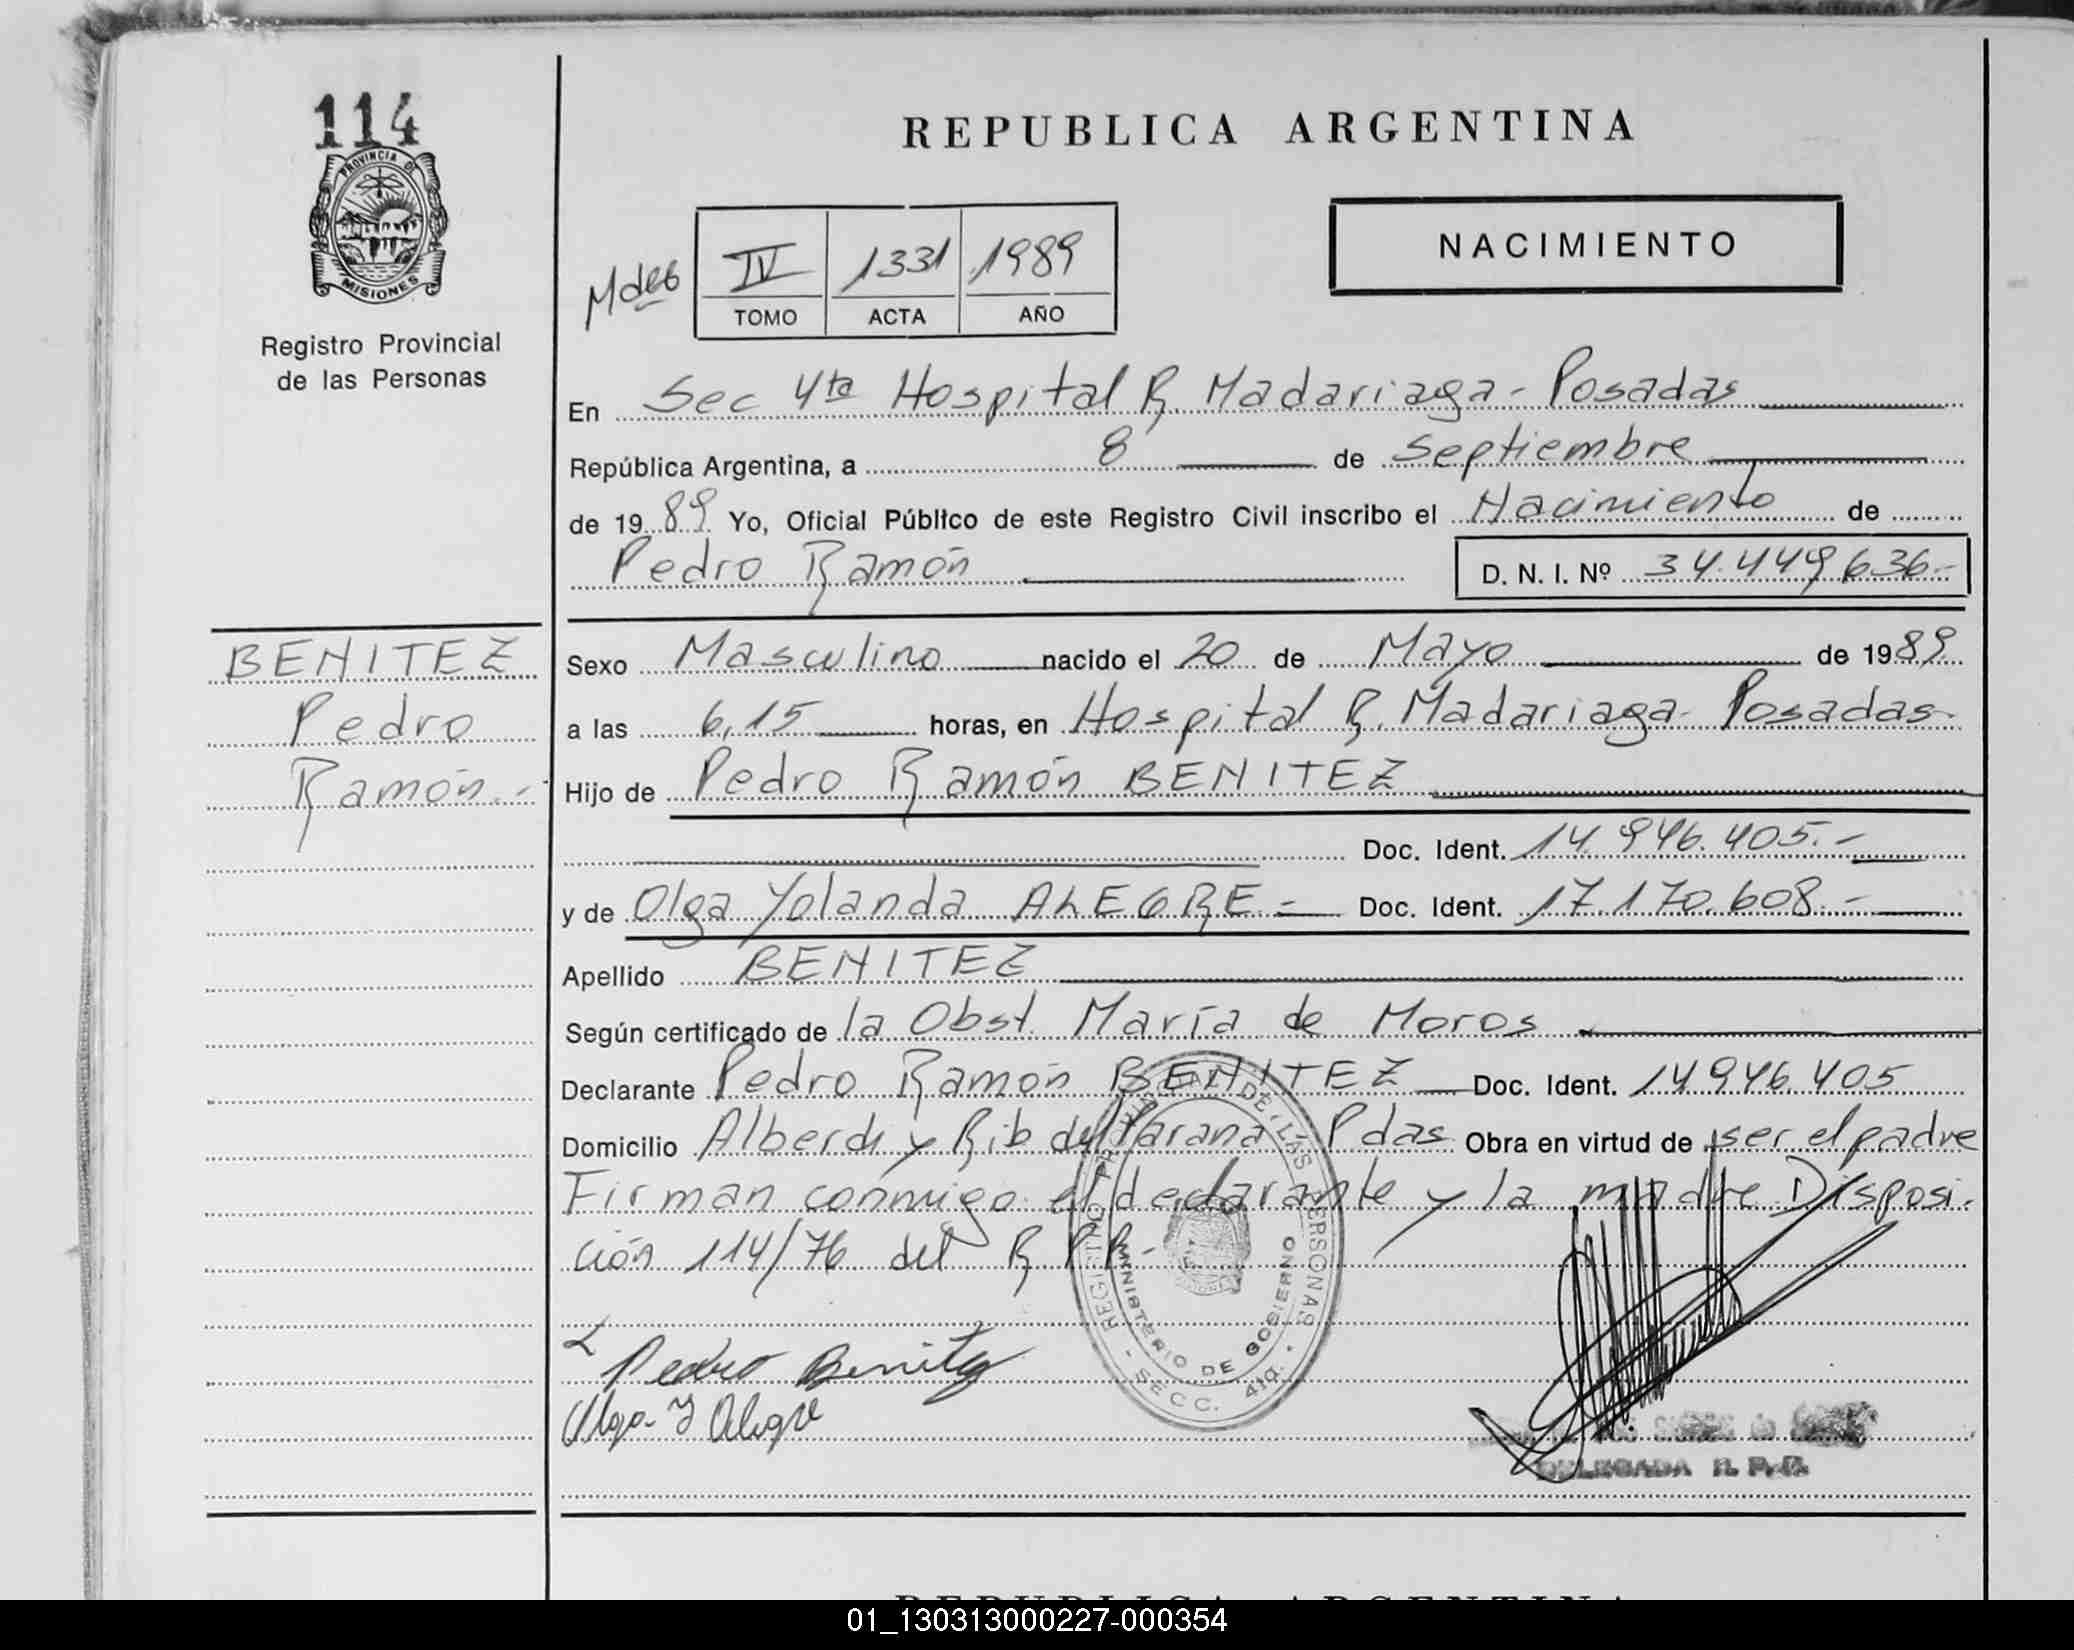 114
PROVINCIA DE
MISIONES
Registro Provincial
de las Personas
REPUBLICA ARGENTINA
NACIMIENTO
IV 1331 1989
TOMO ACTA AÑO
En Sec 4ta Hospital R. Madariaga - Posadas
República Argentina, a 8 de Septiembre
de 1989 Yo, Oficial Público de este Registro Civil inscribo el Nacimiento de
Pedro Ramón D. N. I. Nº 34.449.636.-
BENITEZ
Pedro
Ramón.-
Sexo Masculino nacido el 20 de Mayo de 1989
a las 6,15 horas, en Hospital R. Madariaga - Posadas-
Hijo de Pedro Ramón BENITEZ
Doc. Ident. 14.946.405.-
y de Olga Yolanda ALEGRE = Doc. Ident. 17.170.608.-
Apellido BENITEZ
Según certificado de la Obst. María de Moros
Declarante Pedro Ramón BENITEZ Doc. Ident. 14.946.405
Domicilio Alberdi y Rib del Parana Pdas Obra en virtud de ser el padre
Firman conmigo el declarante y la madre Disposi-
ción 114/76 del R P P.-
REGISTRO PROVINCIAL DE LAS PERSONAS
MINISTERIO DE GOBIERNO
SECC. 4ta.
Pedro Benitez
Olga Y Alegre
DELEGADA R. P. P.
REPUBLICA ARGENTINA
01_130313000227-000354